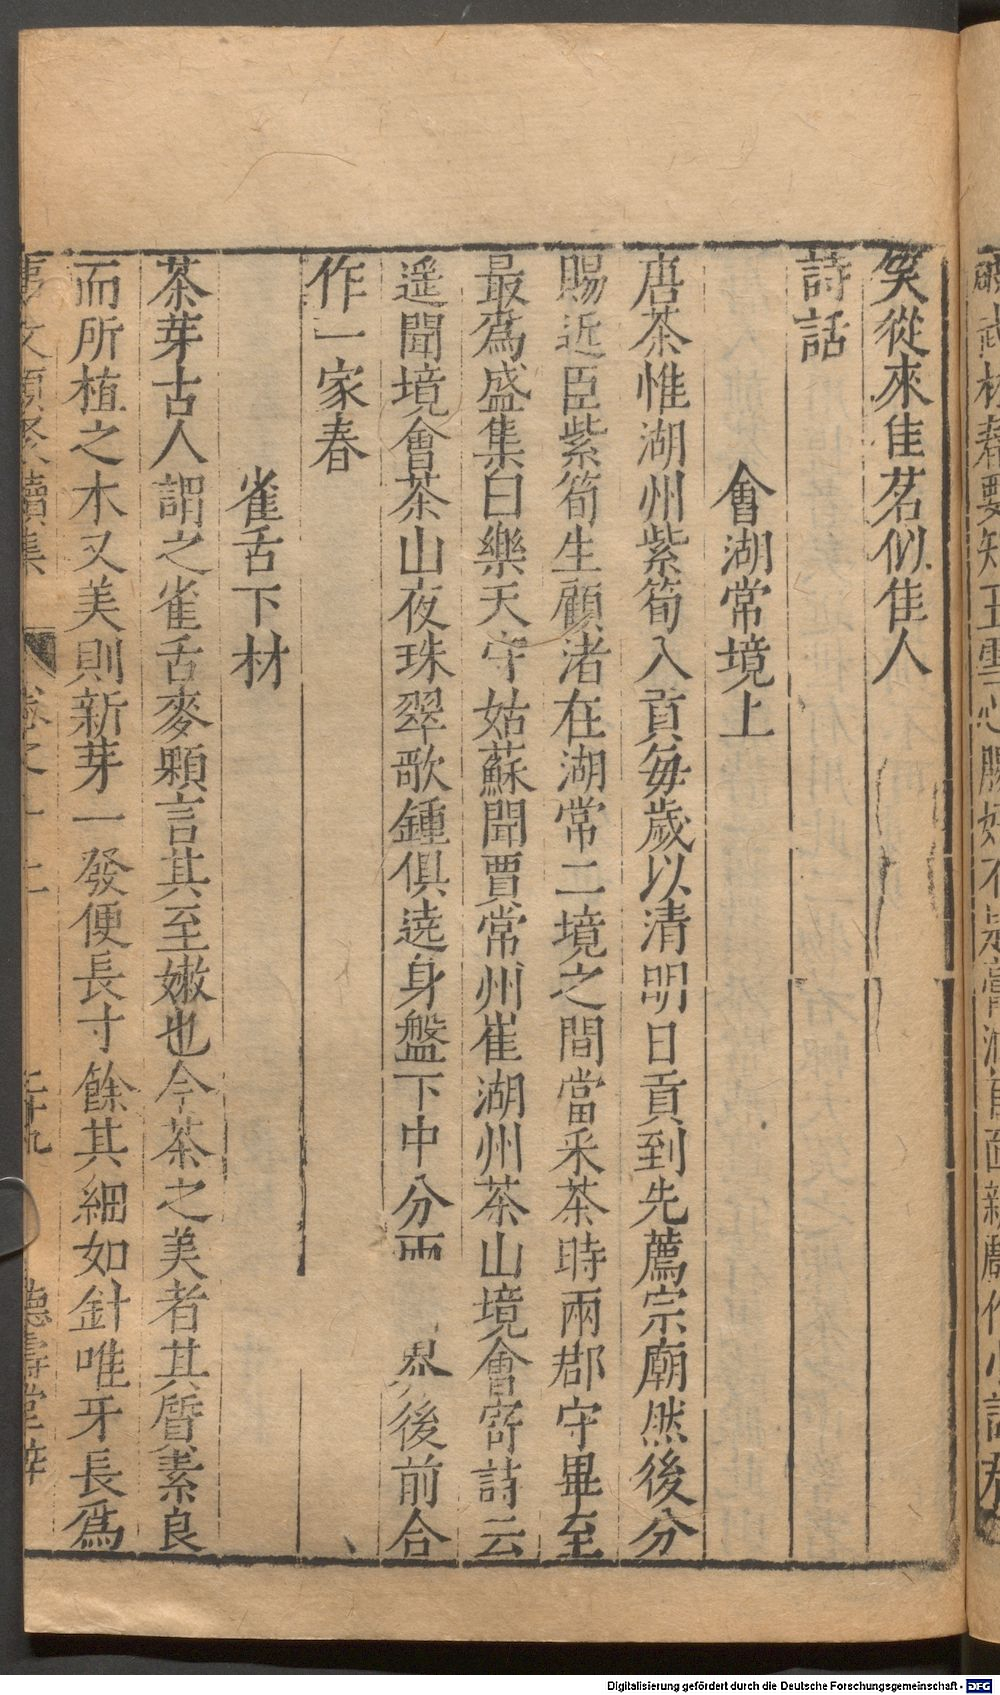 笑從來佳茗似佳人
詩話
會湖常境上
唐茶惟湖州紫筍入貢每歲以清明日貢到先薦宗廟然後分
賜近臣紫筍生顧渚在湖常二境之間當采茶時兩郡守畢至
最爲盛集白樂天守姑蘇聞賈常州崔湖州茶山境會寄詩云
遥聞境會茶山夜珠翠歌鍾俱遶身盤下中分兩界後前合
作一家春
雀舌下材
茶芽古人謂之雀舌麥顆言其至嫩也今茶之美者其質素良
而所植之木又美則新芽一發便長寸餘其細如針唯牙長爲
事文類聚續集 卷之十二 德壽堂梓
Digitalisierung gefördert durch die Deutsche Forschungsgemeinschaft - DFG